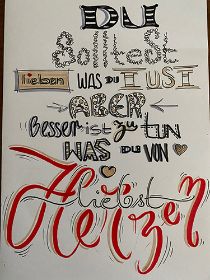 DU
Solltest
lieben WAS DU TUST
ABER
Besser ist zu TUN
WAS DU VON
Herzen
liebst